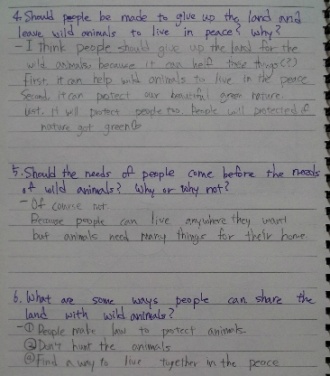 4. Should people be made to give up the land and
leave wild animals to live in peace? Why?
- I think people should give up the land for the
wild animals. because it can help three things(?)
first, it can help wild animals to live in the peace
Second it can protect our beautiful green nature.
last, it will protect people too. People will protected of
nature got green
5. Should the needs of people come before the needs
of wild animals? Why or why not?
- Of course not.
Because people can live anywhere they want
but animals need many things for their home.
6. What are some ways people can share the
land with wild animals?
- ① People make law to protect animals.
② Don't hunt the animals
③ Find a way to live together in the peace